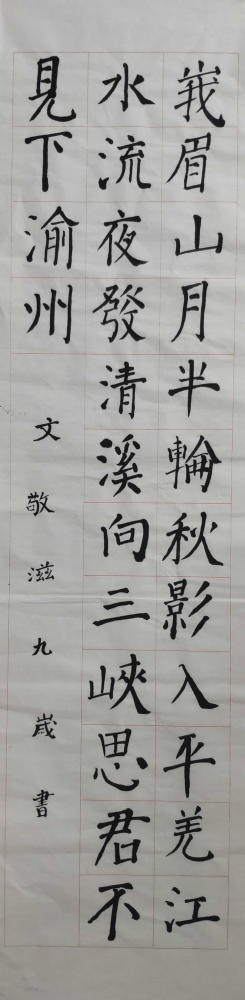 峩眉山月半輪秋影入平羌江
水流夜發清溪向三峽思君不
見下渝州
文敬滋九歲書